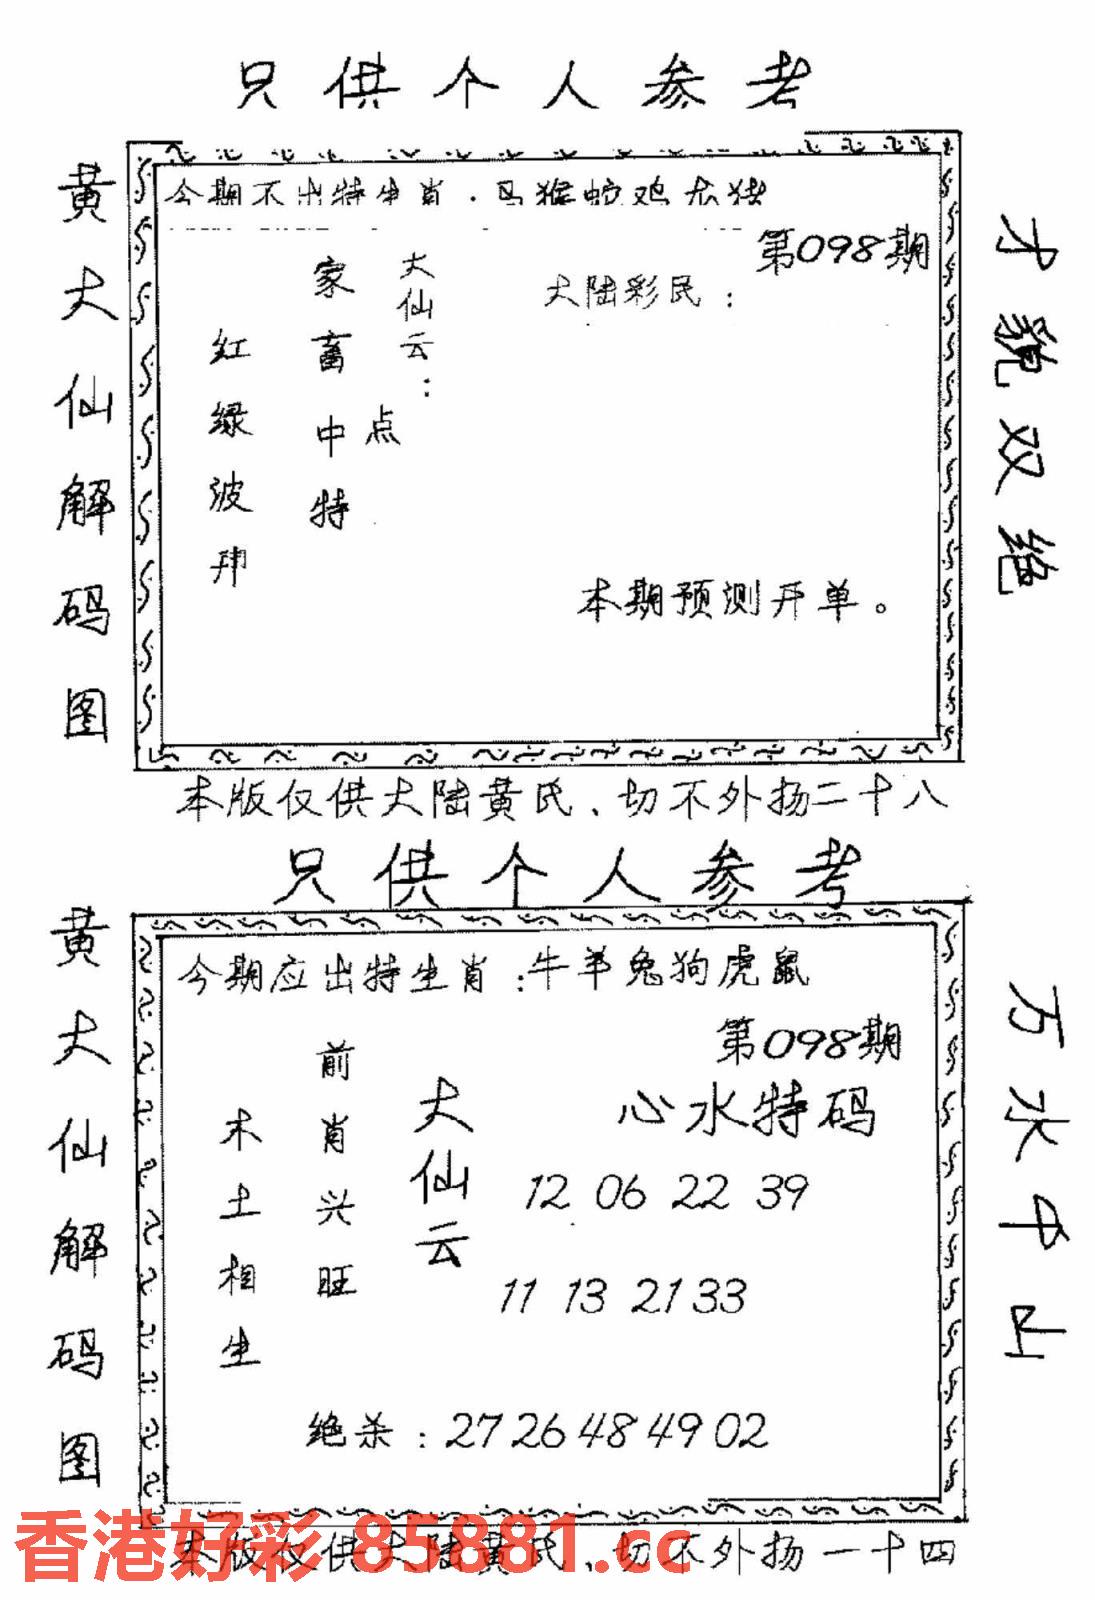 只供个人参考
黄大仙解码图
今期不出特生肖.马猴蛇鸡龙猪
第098期
大陆彩民:
大仙云:
点
家畜中特
红绿波
本期预测开单。
才貌双绝
本版仅供大陆黄氏、切不外扬二十八
只供个人参考
黄大仙解码图
今期应出特生肖:牛羊兔狗虎鼠
第098期
心水特码
大仙云
前肖兴旺
木土相生
12 06 22 39
11 13 21 33
绝杀:27 26 48 49 02
万水千山
本版仅供大陆黄氏、切不外扬一十四
香港好彩 85881.cc